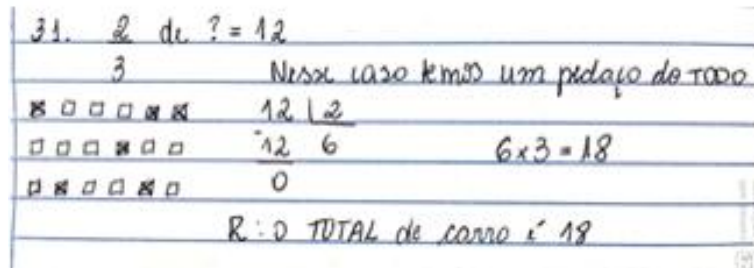 31. 2/3 de ? = 12
Nesse caso temos um pedaço do TODO
12 | 2
-12 6
0
6x3 = 18
R: O TOTAL de carro é 18